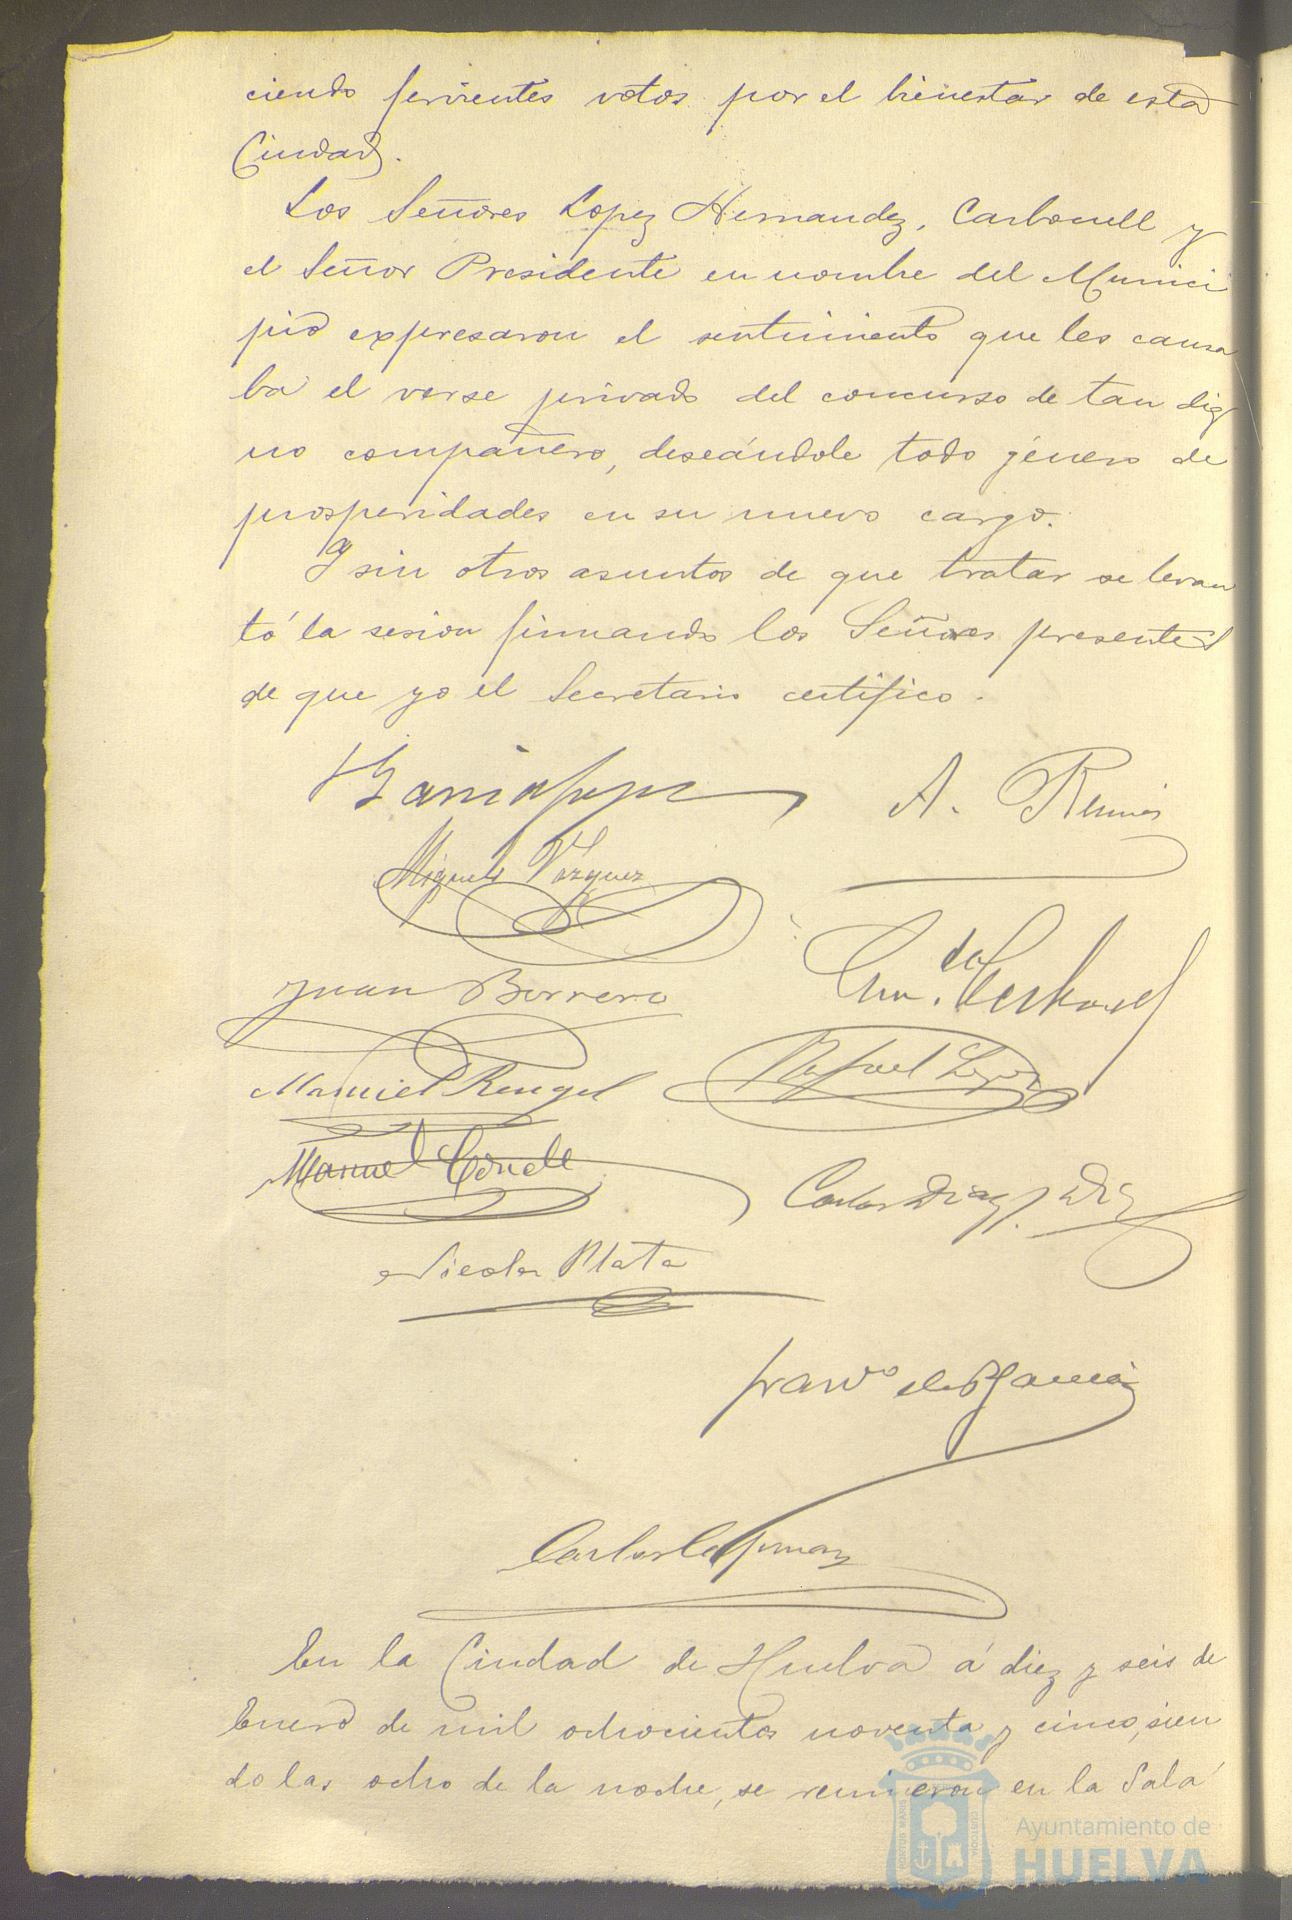 ciendo fervientes votos por el bienestar de esta
Ciudad.
Los Señores Lopez Hernandez, Carbonell y
el Señor Presidente en nombre del Munici
pio expresaron el sentimiento que les causa
ba el verse privado del concurso de tan dig
no compañero, deseándole todo género de
prosperidades en su nuevo cargo.
Y sin otros asuntos de que tratar se levan
tó la sesion firmando los Señores presentes
de que yo el Secretario certifico.
A.
Miguel Vázquez
Juan Borrero
Manuel Rengel
Rafael Lopez
Manuel
Carlos Diaz
Nicolas Plata
Garcia
Carlos
En la Ciudad de Huelva á diez y seis de
Enero de mil ochocientos noventa y cinco, sien
do las ocho de la noche, se reunieron en la Sala
PORTUS MARIS
CUSTODIA
Ayuntamiento de
HUELVA